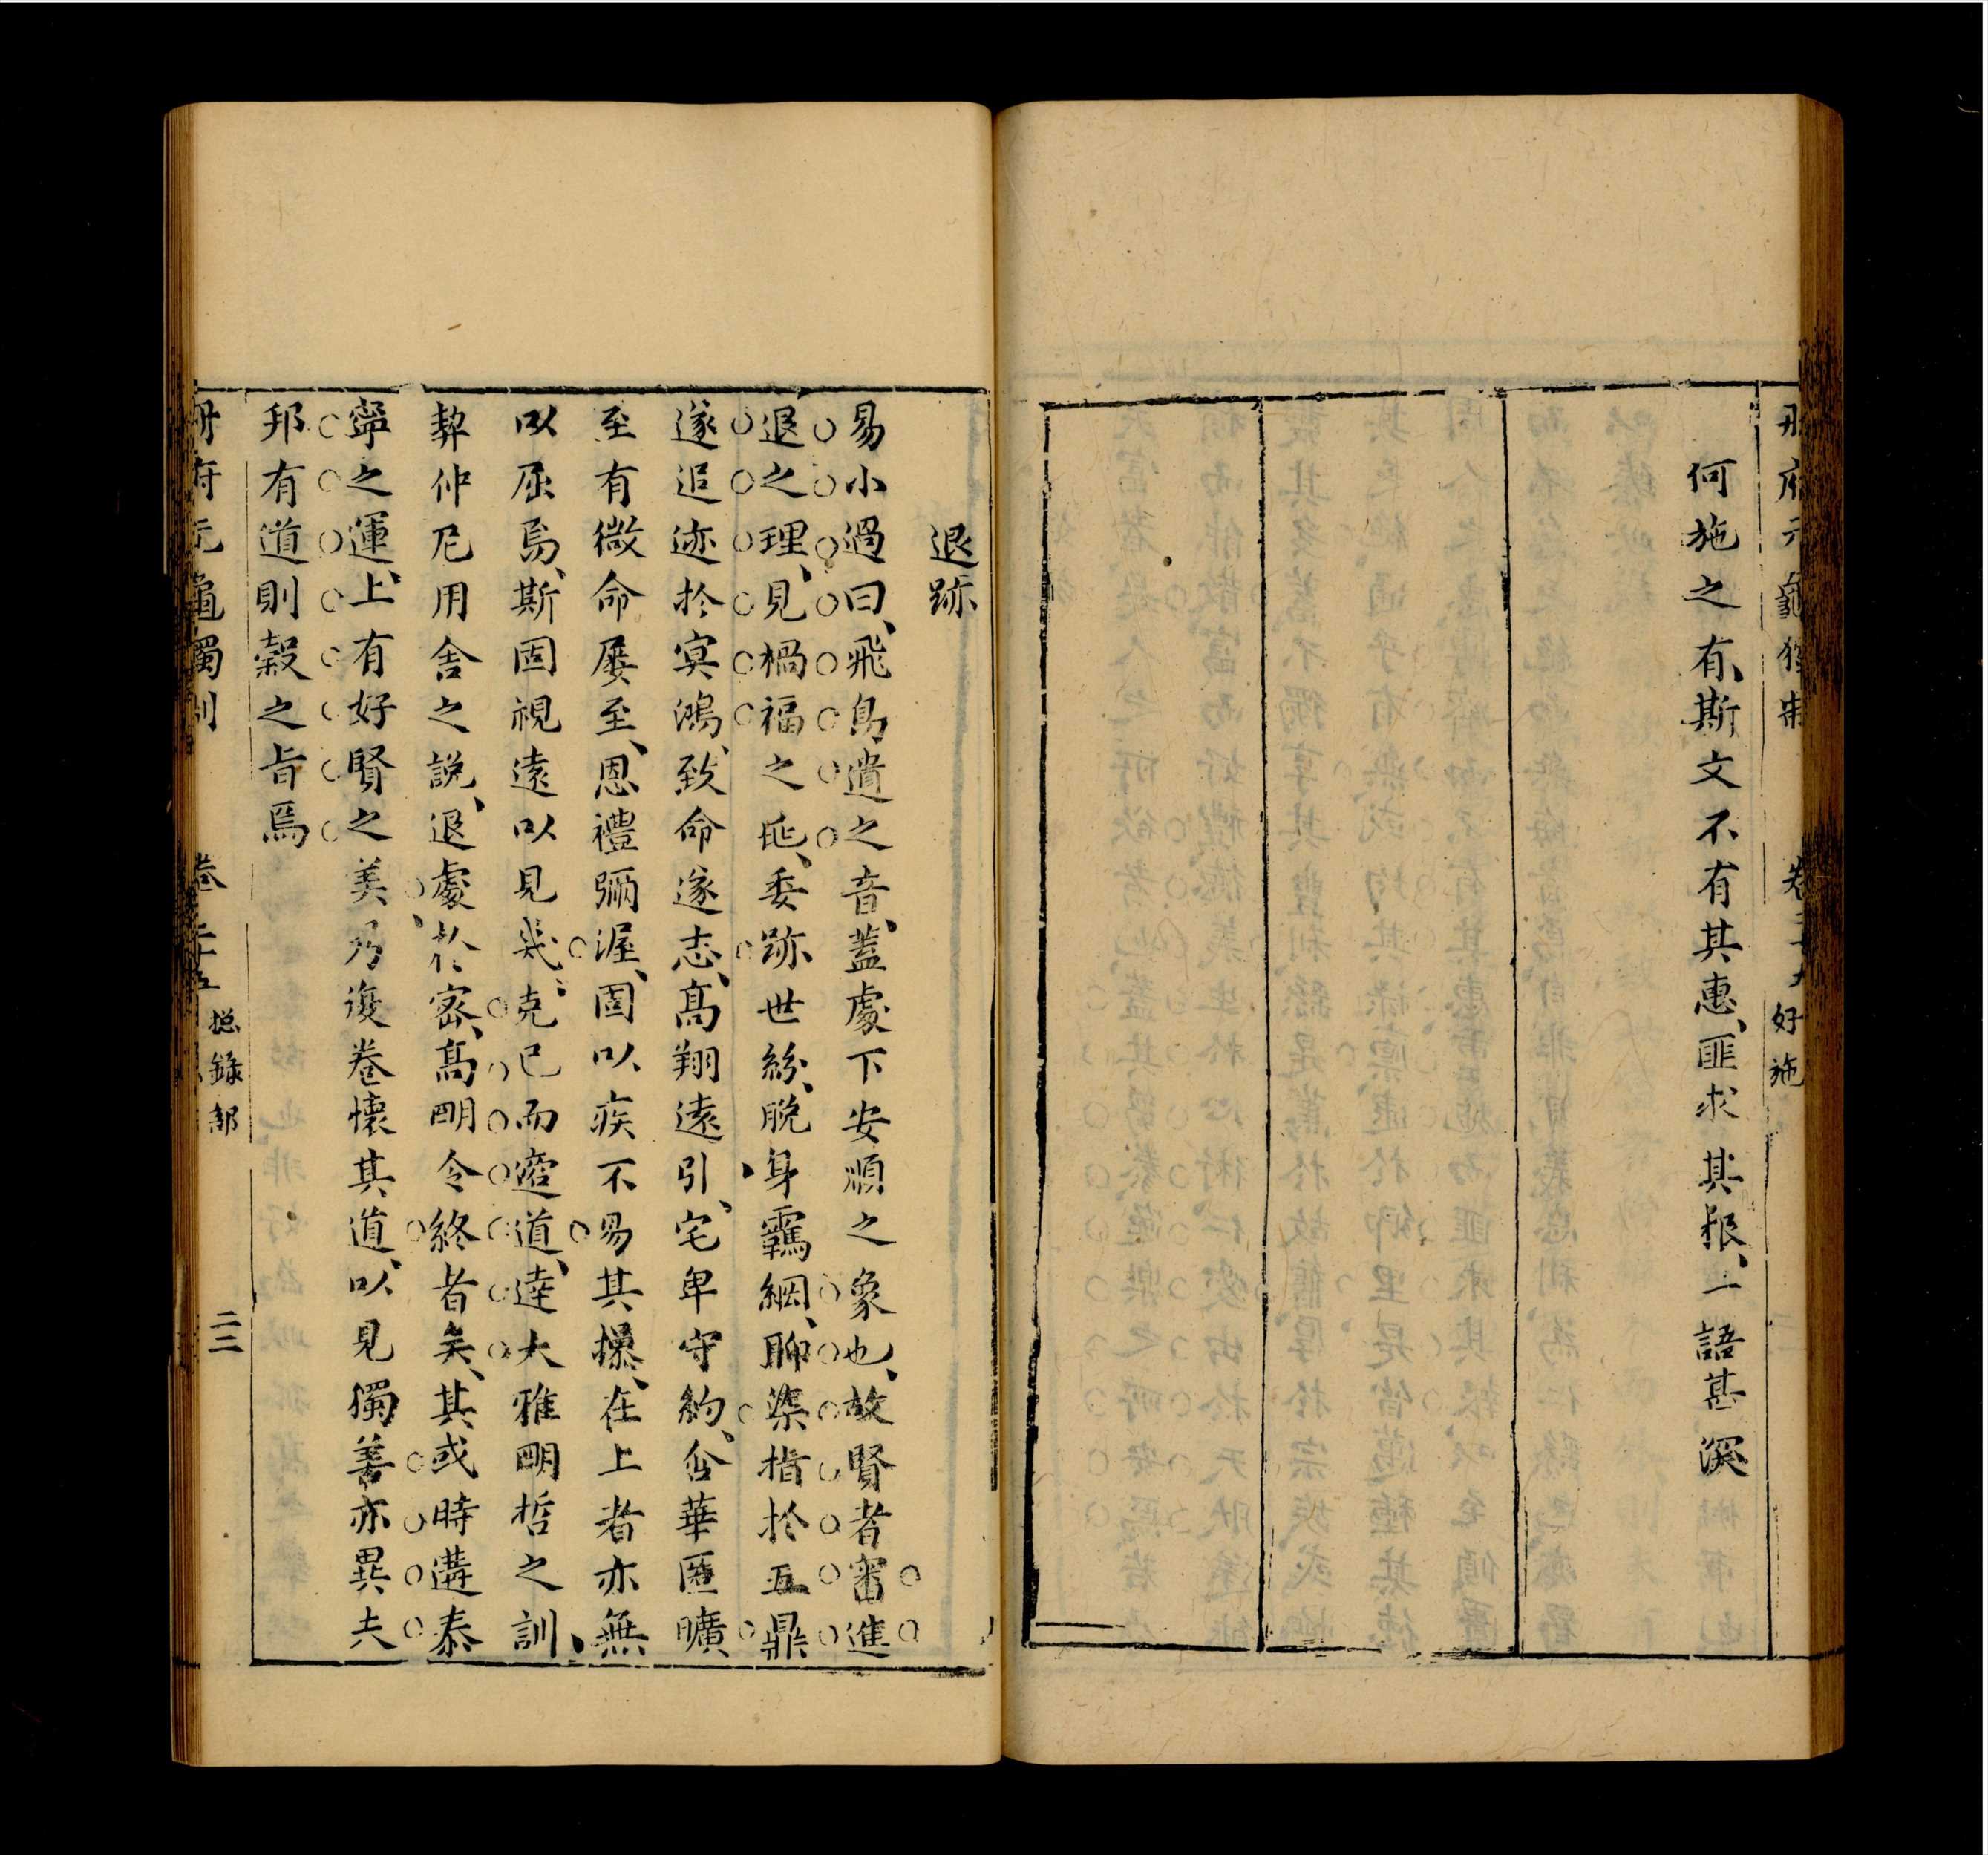 何施之有斯文不有其惠匪求其报一語甚深
好施
退跡
易小過曰飛鳥遺之音蓋處下安順之象也故賢者審進
退之理見禍福之兆委跡世紛脫身羈網聊染指於五鼎
遂追迹於冥鴻致命遂志高翔遠引宅卑守約含華匿曠
至有徵命屢至恩禮彌渥固以疾不易其操在上者亦無
以屈焉斯固視遠以見幾克已而適道達大雅明哲之訓
契仲尼用舍之說退處於密高明令終者矣其或時遘泰
寧之運上有好賢之美乃復卷懷其道以見獨善亦異夫
邦有道則穀之旨焉
冊府元龜獨制
總錄部
二二